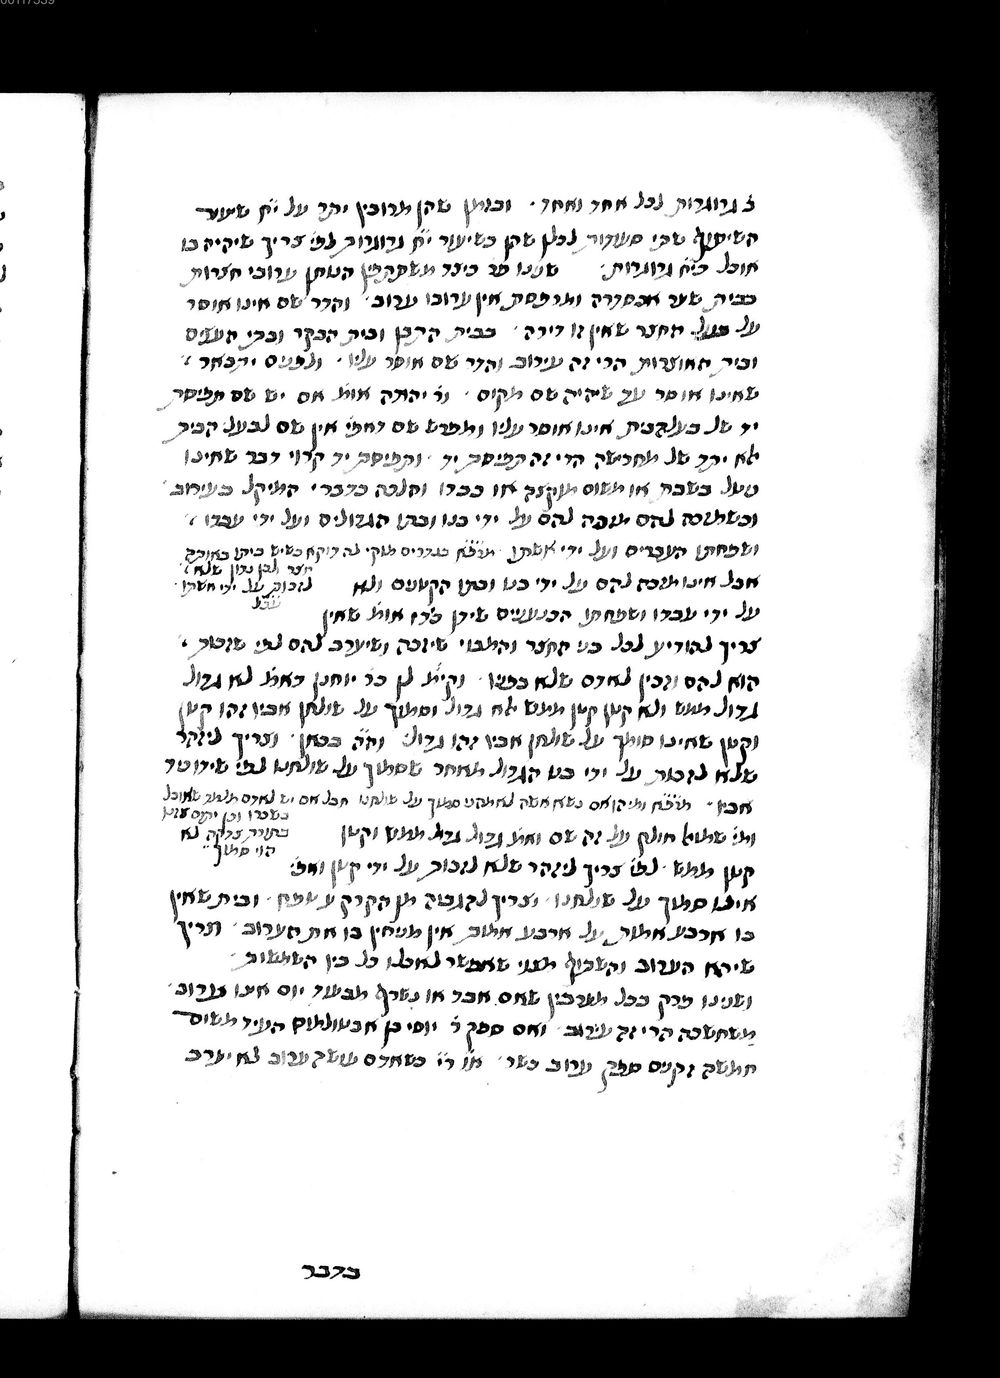 ב׳ גרוגרות לכל אחד ואחד · ובזמן שהן מרובין יתר על י״ח שיעור
השיתוף שתי סעודות לכלן שהן כשיעור י״ח גרוגרות לפי׳ צריך שיהיה בו
אוכל כי״ח גרוגרות · שנינו פר׳ כיצד משתתפין הנותן ערובי חצרות
בבית שער אכסדרה ומרפסת אין ערובו ערוב · והדר שם אינו אוסר
על בעל החצר שאין זו דירה · בבית התבן ובית הבקר ובבית העצים
ובית האוצרות הרי זה עירוב והדר שם אוסר עליו · ולפנים יתבאר
שאינו אוסר עד שיהיה שם מקום · ור׳ יהודה אומ׳ אם יש שם תפיסת
יד של בעל הבית אינו אוסר עליו ומפרש שם דאפי׳ אין שם לבעל הבית
אלא יתד של מחרישה הרי זה תפיסת יד · ותפיסת יד קרוי דבר שאינו
נטל בשבת או משום מוקצה או כבדו והלכה כדברי המיקל בעירוב ·
וכשמזכה להם מזכה להם על ידי בנו ובתו הגדולים ועל ידי עבדו
ושפחתו העברים ועל ידי אשתו · בנדרים מוקי לה דוקא כשיש ביתו באותה
חצר
לזכות על ידי אשתו
אבל אינו מזכה להם על ידי בנו ובתו הקטנים ולא
על ידי עבדו ושפחתו הכנענים שידן כידו אומ׳ שאין
צריך להודיע לכל בני החצר והמבוי שיזכה ושיערב להם לפי שזכות
הוא להם וזכין לאדם שלא בפניו · וקי״מ לן כר׳ יוחנן דאמ׳ לא גדול
גדול ממש ולא קטן קטן ממש אלא גדול וסמוך על שולחן אביו זהו קטן
וקטן שאינו סומך על שולחן אביו זהו גדול · וה״ה בכאן · וצריך ליזהר
שלא לזכות על ידי בנו הגדול מאחר שסמוך על שולחנו לפי שידו כיד
אביו · ומיהו אם נשא אשה לא סמוך על שולחנו אבל אם יש לאדם שאוכל
בשכרו וכן יתום
בתורת צדקה לא
הוי סמוך
ומר׳ שמואל חולק על זה שם ואמ׳ גדול גדול ממש וקטן
קטן ממש · לפי׳ צריך ליזהר שלא לזכות על ידי קטן ואפי׳
אינו סמוך על שולחנו · וצריך להגביה מן הקרקע טפח · ובית שאין
בו ארבע אמות על ארבע אמות אין מניחין בו את הערוב · וצריך
שיהא הערוב והשיתוף מצוי שאפשר לאכלו כל בין השמשות ·
ושנינו פרק בכל מערבין שאם אבד או נשרף מבעוד יום אינו ערוב ·
משחשכה הרי זה עירוב · ואם ספק ר׳ יוסי בן אבטולמוס העיד משום
חמשה זקנים ספק ערוב כשר · כשאדם עושה ערוב לא יערב
בדבר